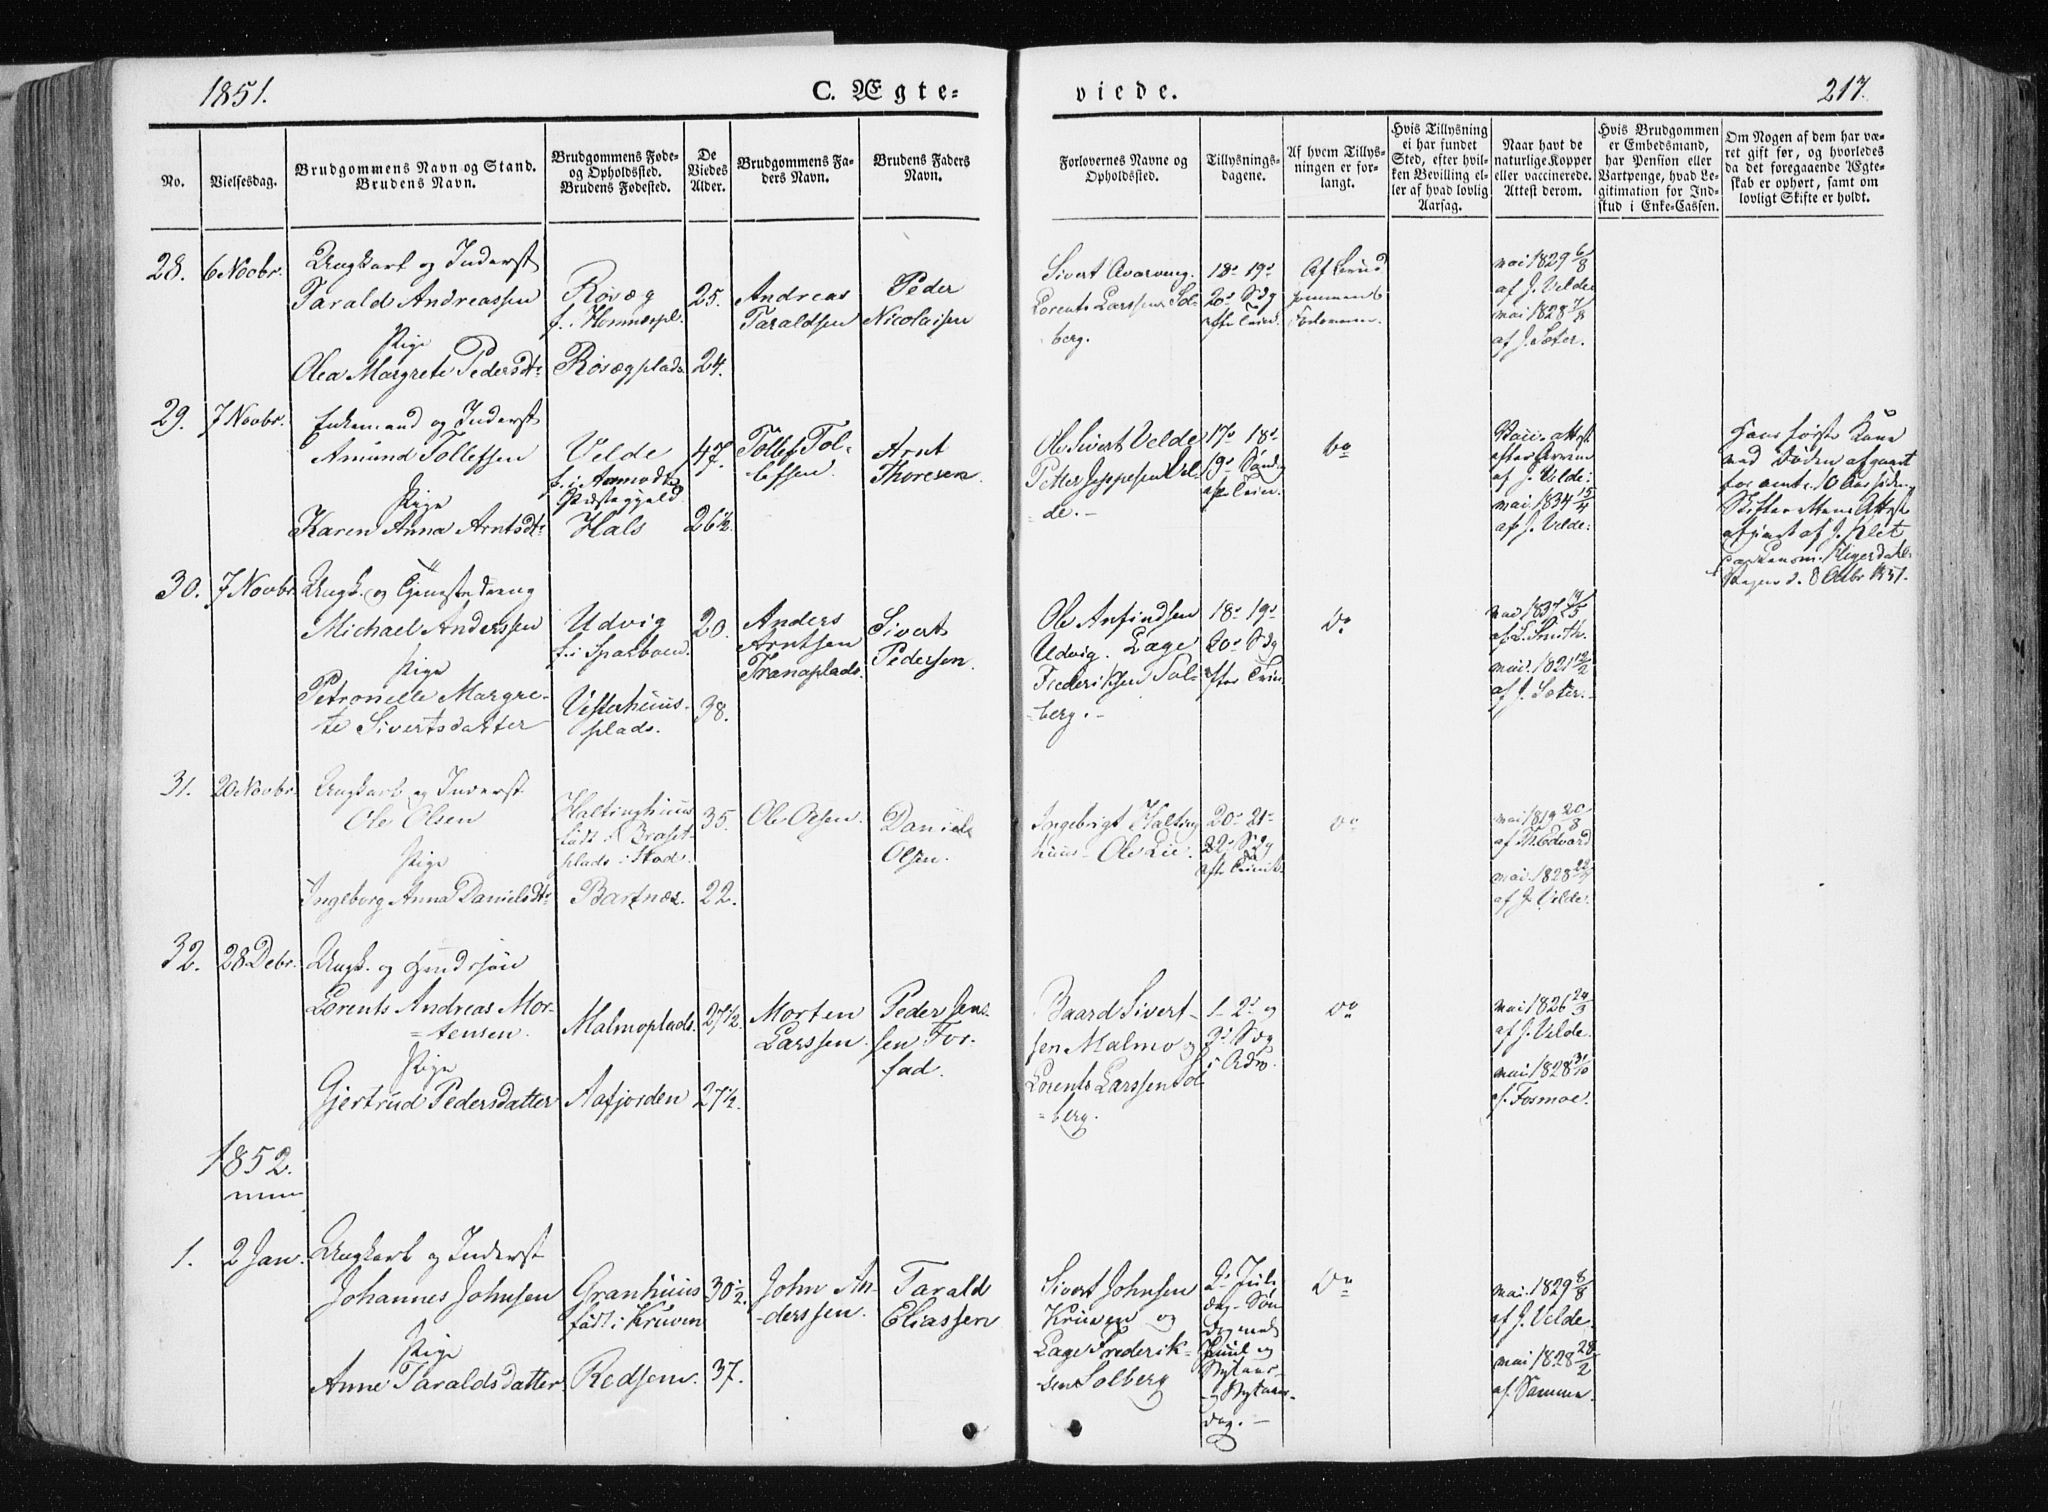 1851.
C. Ægte=
viede.
217.
No.
Vielsesdag.
Brudgommens Navn og Stand.
Brudens Navn.
Brudgommens Føde-
og Opholdssted.
Brudens Fødested.
De
Viedes
Alder.
Brudgommens Fa-
ders Navn.
Brudens Faders
Navn.
Forlovernes Navne og
Opholdssted.
Tillysnings-
dagene.
Af hvem Tillys-
ningen er for-
langt.
Hvis Tillysning
ei har fundet
Sted, efter hvil-
ken Bevilling el-
ler af hvad lovlig
Aarsag.
Naar havt de
naturlige Kopper
eller vaccinerede.
Attest derom.
Hvis Brudgommen
er Embedsmand,
har Pension eller
Vartpenge, hvad Le-
gitimation for Ind-
skud i Enke-Cassen.
Om Nogen af dem har væ-
ret gift før, og hvorledes
da det foregaaende Ægte-
skab er ophørt, samt om
lovligt Skifte er holdt.
28.
6 Novbr.
Ungkarl og Inderst
Tarald Andreassen
Pige
Olea Margrete Pedersdtr
Røsæg
f. i Homnespl.
Røsægplads
25.
24.
Andreas
Taraldsen
Peder
Nicolaisen
Sivert Avarveng.
Lorents Larssen Sol-
berg.
18de 19de
20de Sdg
efter Trin.
Af Brud
gommens
Forlovere.
vac. 1829 6/8
af J. Velde
vac. 1828 7/8
af J. Sæter.
29.
7 Novbr.
Enkemand og Inderst
Amund Tollefsen
Pige
Karen Anna Arntsdtr
Velde
f. i Aamodts
Præstegjeld
Hals
47.
26½.
Tollef Tol-
lefsen.
Arnt
Thoresen.
Ole Sivert Velde
Petter Jeppesen Vel-
de.-
17de 18de
19de Sønd.
efter Trin.
do
af J. Velde:
vac. 1834 15/4
af J. Velde:
Hans første Kone
ved Døden afgaaet
for omt. 10 Aar siden.
Skifterettens Attest
d. 8 Octbr 1851.
30.
7 Novbr.
Ungk. og Tjenestedreng
Michael Anderssen
Pige
Petronelle Margre-
te Sivertsdatter
Udvig
f. i Sparboen.
Vesterhuus-
plads.
20.
38.
Anders
Arntsen
Tranaplads.
Sivert
Pedersen.
Ole Anfindsen
Udvig. Lage
Frederiksen Sol-
berg.-
18de 19de
20de Sdg
efter Trin.
do
vac. 1837 19/5
af S. Smith.
vac. 1821 12/2
af J. Sæter.
31.
20 Novbr.
Ungkarl og Inderst
Ole Olsen
Pige
Ingeborg Anna Danielsdtr
Haltinghuus
født i Braset-
plads i Stod.
Bartnæs.
35.
22.
Ole Olsen.
Daniel
Olsen.
Ingebrigt Halting
huus- Ole Lie.
20de 21de
22de Sdg
efter Trinit.
do
vac. 1819 20/8
af Th. Edvard
vac. 1828 22/7
af J. Velde.
32.
28 Debr.
Ungk. og Gaardsøn
Lorents Andreas Mor-
tensen.
Pige
Gjertrud Pedersdatter
Malmoplads.
Aafjorden
27½.
27½.
Morten
Larssen.
Peder Jens-
sen For-
fad.
Baard Sivert-
sen Malmo og
Lorents Larssen Sol
berg.
1. 2de og
3de Sdg
i Adv.
do
vac. 1826 24/3
af J. Velde.
vac. 1828 31/10
af Fosmoe.
1852.
1.
2 Jan.
Ungkarl og Inderst
Johannes Johnsen
Pige
Anne Taraldsdatter
Granhuus
født i Kruven
Redsem.
30½.
37.
John An-
derssen.
Tarald
Eliassen
Sivert Johnsen
Kruven og
Lage Frederik-
sen Solberg
2den Jule
dag- Søn
dag mel.
Juul og
Nytaar-
og Nytaars-
dag.-
do
vac. 1829 8/8
af J. Velde.
vac. 1828 28/2
af Samme.